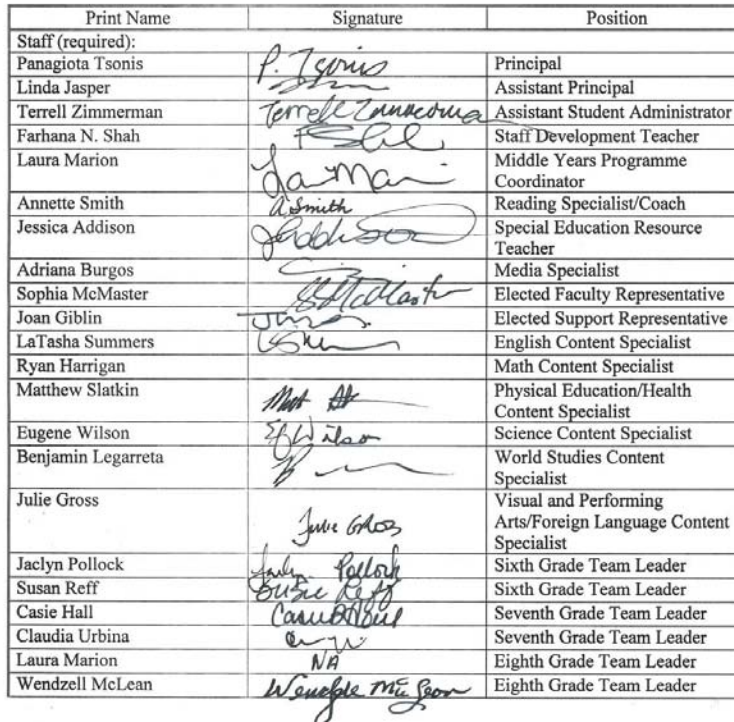 Print Name Signature Position
Staff (required):
Panagiota Tsonis P. Tsonis Principal
Linda Jasper Assistant Principal
Terrell Zimmerman Terrell Assistant Student Administrator
Farhana N. Shah Staff Development Teacher
Laura Marion Middle Years Programme
Coordinator
Annette Smith A Smith Reading Specialist/Coach
Jessica Addison Special Education Resource
Teacher
Adriana Burgos Media Specialist
Sophia McMaster SMcMaster Elected Faculty Representative
Joan Giblin Elected Support Representative
LaTasha Summers English Content Specialist
Ryan Harrigan Math Content Specialist
Matthew Slatkin Physical Education/Health
Content Specialist
Eugene Wilson Wilson Science Content Specialist
Benjamin Legarreta World Studies Content
Specialist
Julie Gross Julie Gross Visual and Performing
Arts/Foreign Language Content
Specialist
Jaclyn Pollock Pollock Sixth Grade Team Leader
Susan Reff Susie Reff Sixth Grade Team Leader
Casie Hall Seventh Grade Team Leader
Claudia Urbina Seventh Grade Team Leader
Laura Marion NA Eighth Grade Team Leader
Wendzell McLean Eighth Grade Team Leader